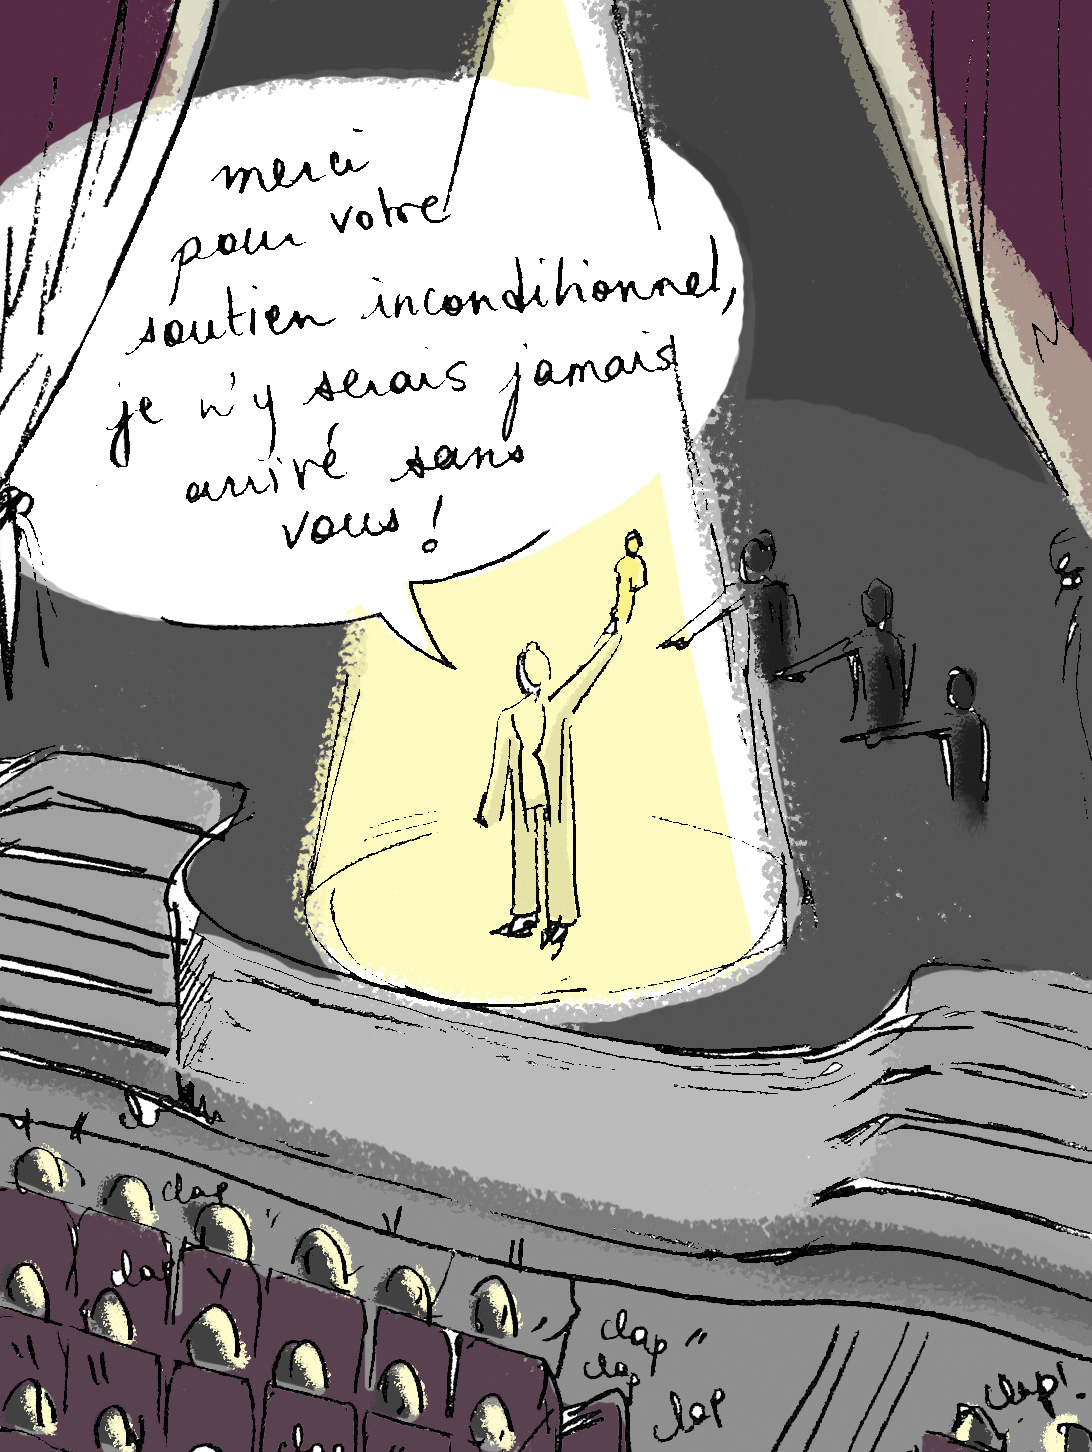 merci
pour votre
soutien inconditionnel,
je n'y serais jamais
arrivé sans
vous !
clap
clap
clap
clap
clap
clap!
clap